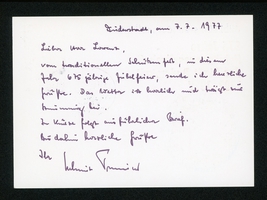 Duderstadt, am 7.7.1977
Lieber Herr Lorenz,
vom traditionellen Schützenfest, in diesem
Jahr 675 jährige Jubelfeier, sende ich herzliche
Grüße. Das Wetter ist herrlich und trägt zur
Stimmung bei.
In Kürze folgt ausführlicher Brief.
Bis dahin herzliche Grüße
Ihr